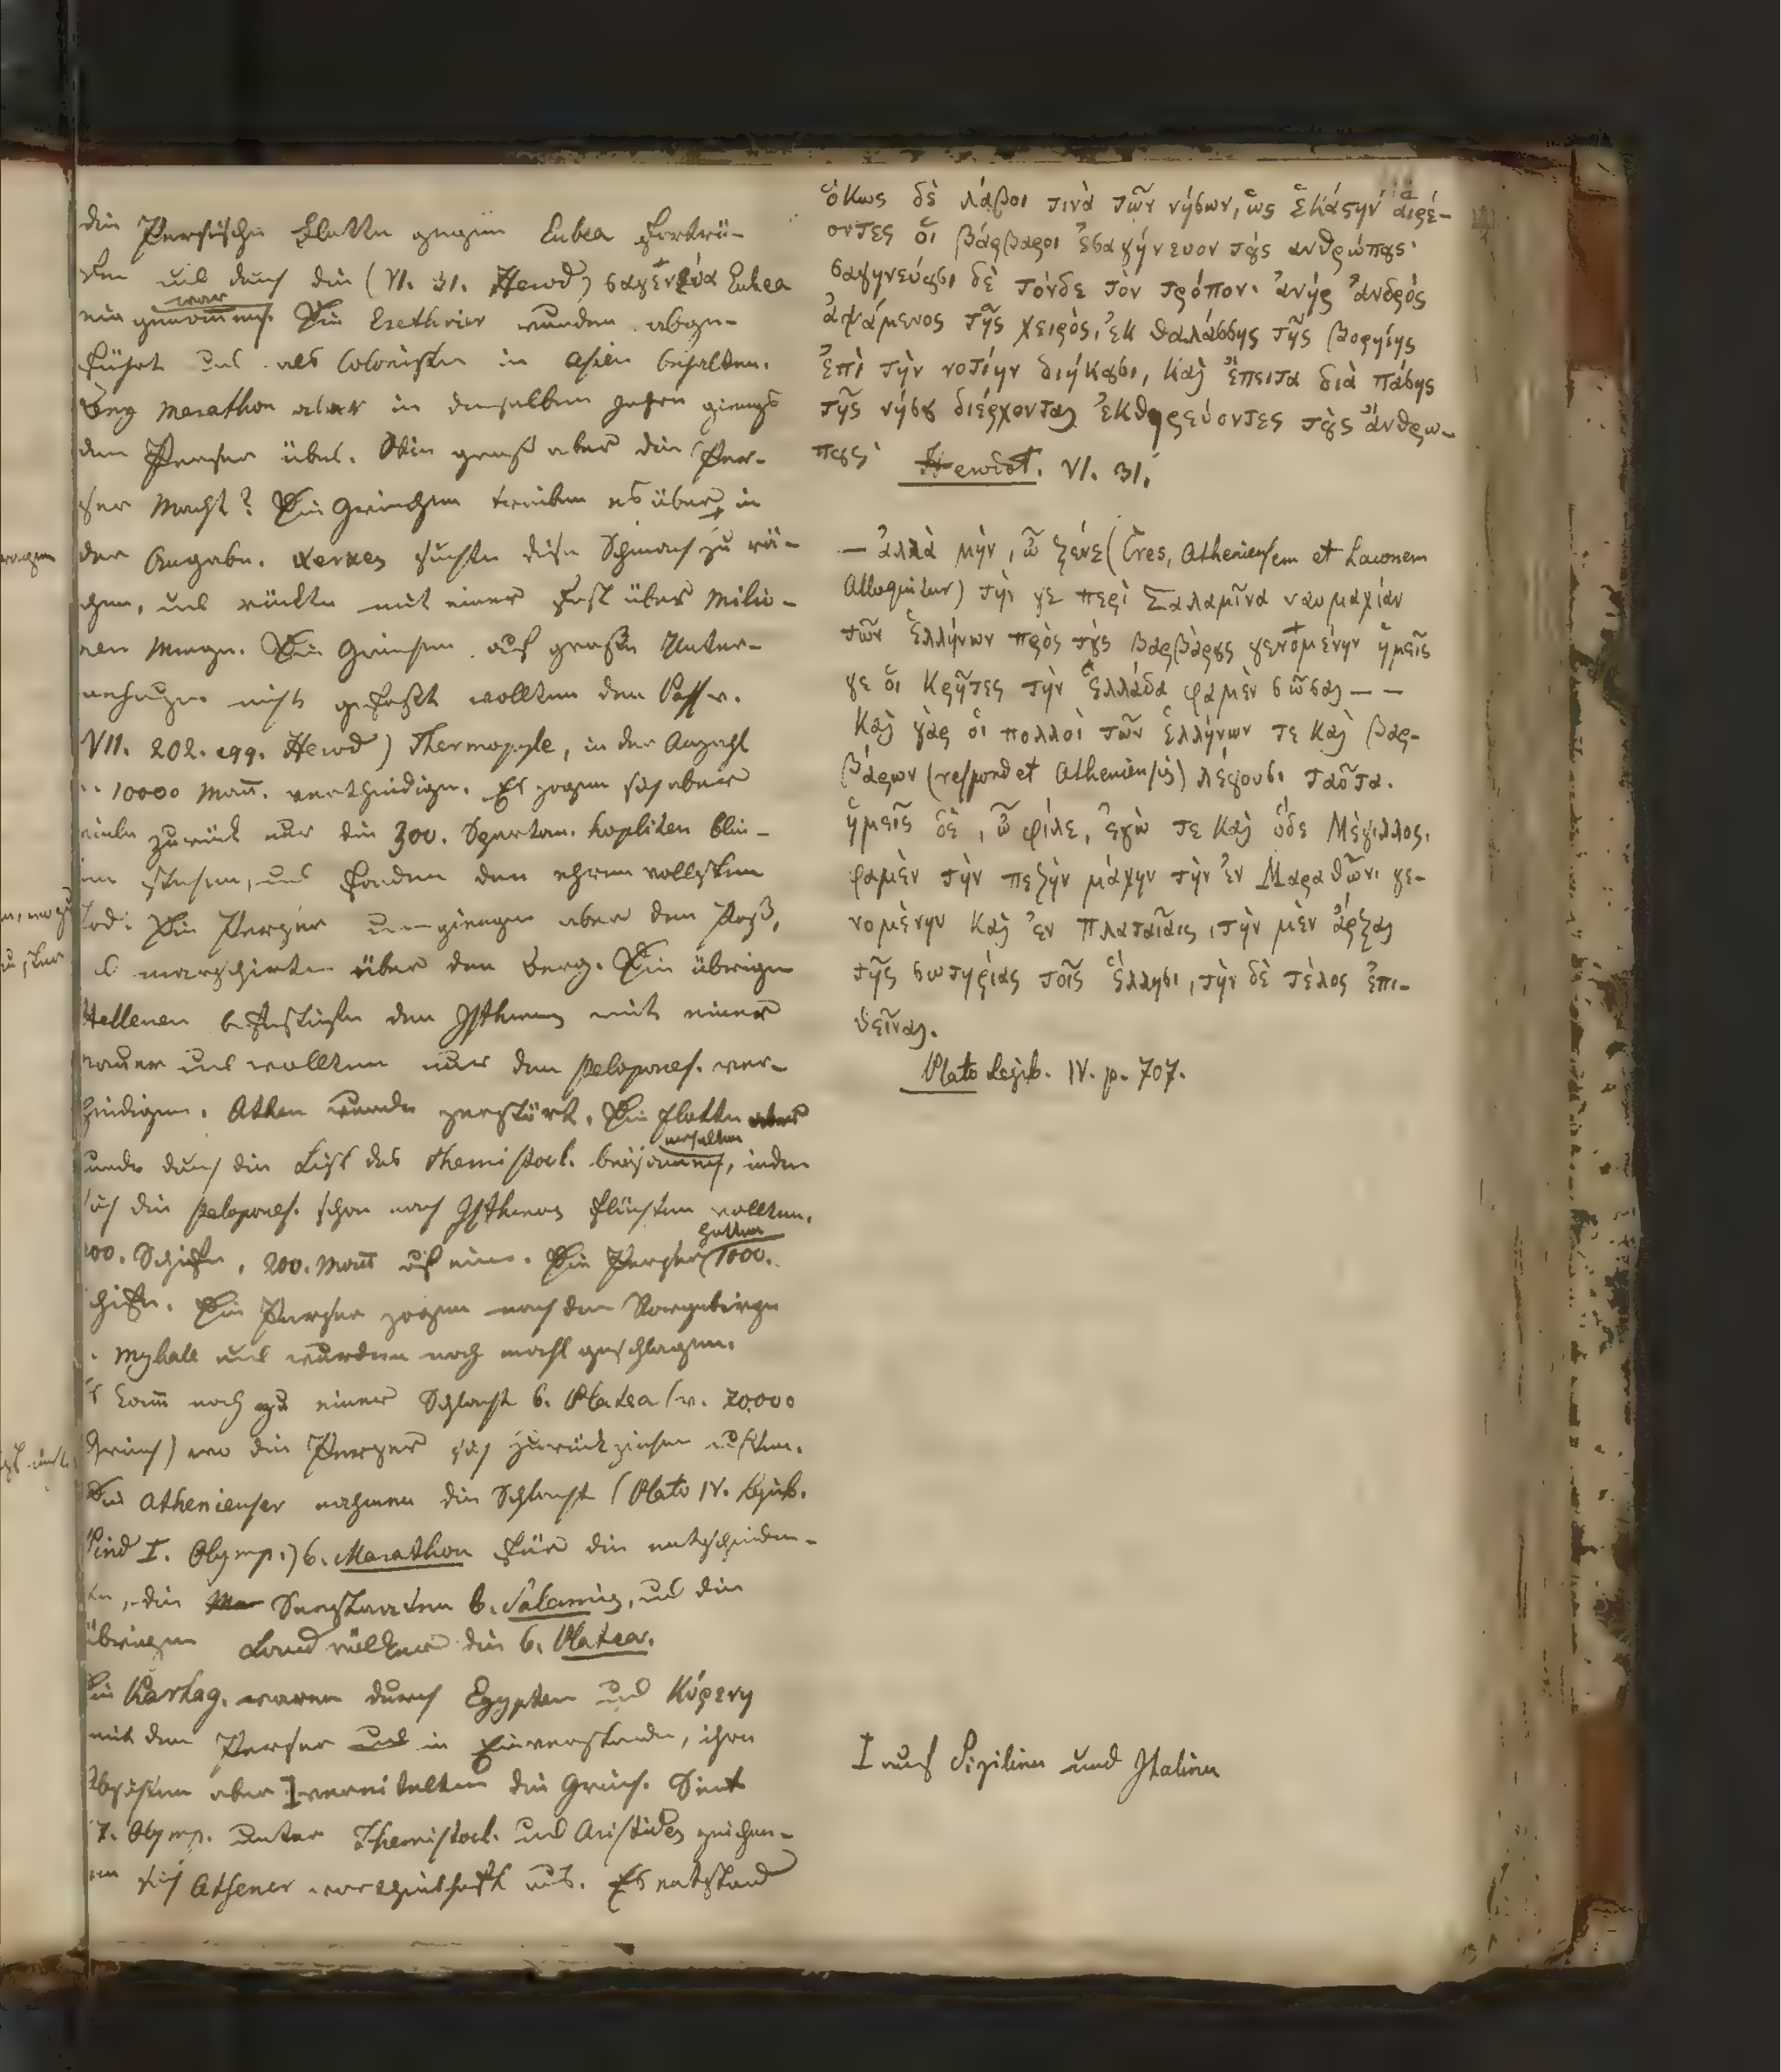 die Persische Flotte gegen Eubea fortrü-
ken und durch die (VI. 31. Herod) σαγενεύα Eubea
war
eingenommen. Die Erethrier wurden abge-
führt und als Colonisten in Asien behalten.
Bey Marathon aber in demselben Jahre giengs
den Perser übel. Wie groß aber die Per-
ser Macht? Die Griechen treiben es über in
der Angabe. Xerxes suchte diese Schmach zu rä-
chen, und rückte mit einer fast über Milio-
nen Menge. Die Griechen auf große Unter-
nehmungen nicht gefaßt wollten den Paß v.
VII. 202. sqq. Herod) Thermopyle, in der Anzahl
10000 Mañ. vertheidigen. Es zogen sich aber
viele zurück nur die 300. Spartan. hopliten blie-
ben stehen, und fanden den ehrenvollsten
Tod. Die Perser umgiengen aber den Paß,
und marschirten über den Berg. Die übrigen
Hellenen befestigten den Isthmus mit einer
Mauer und wollten nur den Pelopones. ver-
theidigen. Athen wurde zerstört. Die Flotte aber
erhalten
wurde durch die List des Themistocl. , indem
sich die Pelopones. schon nach Isthmos flüchten wollten.
hatten
300. Schiffe, 200. Mañ auf einem. Die Perser 1000.
Schiffe. Die Perser zogen nach dem Vorgebirge
Mykale und wurden noch mahl geschlagen.
Es kam noch zu einer Schlacht b. Platea (v. 70000
Griech) wo die Perser sich zurückziehen mußten.
Die Athenienser nahmen die Schlacht (Plato IV. Legib.
Pind I. Olymp.) b. Marathon für die entscheiden-
ste, die Mar Seestaaten b. Salamis, und die
übrigen Landvölker die b. Platea.
Die Kartag. waren durch Egypten und Κύρενη
mit den Perser und in Einverstande, ihre
Absichten aber I vereitelten die Griech. Seit
7. Olymp. unter Themistocl. und Aristides zeichne-
ten sich Athener vortheilhaft aus. Es entstand
ὅκως δὲ λάβοι τινὰ τῶν νήσων, ὡς ἑκάστην αἱρέ-
οντες οἱ βάρβαροι ἐσαγήνευον τοὺς ανθρώπους·
σαγηνεύουσι δὲ τόνδε τὸν τρόπον· ἀνὴρ ἀνδρὸς
ἁψάμενος τῆς χειρὸς, ἐκ θαλάσσης τῆς βορηίης
ἐπὶ τὴν νοτίην διήκουσι, καὶ ἔπειτα διὰ πάσης
τῆς νήσου διέρχονται ἐκθηρεύοντες τοὺς ἀνθρω-
πους· Herodot. VI. 31.
— ἀλλὰ μὴν, ὦ ξένε (Cres, Atheniensem et Laconem
Alloquitur) τήν γε περὶ Σαλαμῖνα ναυμαχίαν
τῶν Ἑλλήνων πρὸς τοὺς βαρβάρους γενομένην ἡμεῖς
γε οἱ Κρῆτες τὴν Ἑλλάδα φαμὲν σῶσαι — —
Καὶ γὰρ οἱ πολλοὶ τῶν Ἑλλήνων τε καὶ βαρ-
βάρων (respondet Atheniensis) λέγουσι ταῦτα.
ἡμεῖς δὲ, ὦ φίλε, ἐγώ τε καὶ ὅδε Μέγιλλος,
φαμὲν τὴν πεζὴν μάχην τὴν ἐν Μαραθῶνι γε-
νομένην καὶ ἐν Πλαταιαῖς, τὴν μὲν ἄρξαι
τῆς σωτηρίας τοῖς Ἕλλησι, τὴν δὲ τέλος ἐπι-
θεῖναι.
Plato Legib. IV. p. 707.
I auf Sizilien und Italien